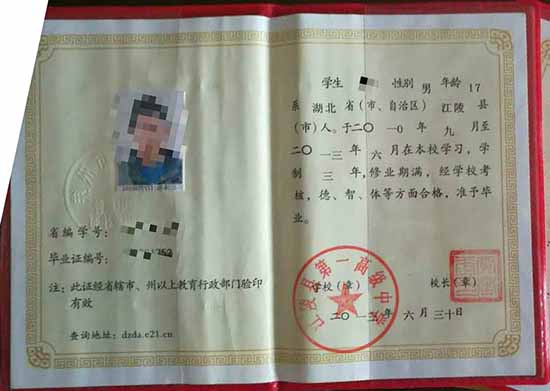 学生 性别 男 年龄 17
系 湖北 省(市、自治区) 江陵 县
(市)人。于二〇一〇年 九 月至
二〇一三年 六 月在本校学习,学
制 三 年,修业期满,经学校考
核,德、智、体等方面合格,准予毕
业。
省编学号:
毕业证编号:
注:此证经省辖市、州以上教育行政部门验印
有效
查询地址:dzda.e21.cn
学校(章) 校长(章)
江陵县第一高级中学
二〇一三年 六 月 三十日